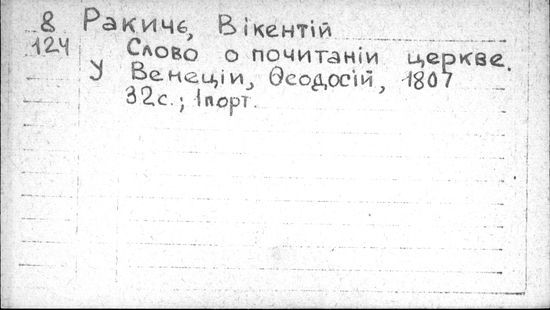 8 Ракичє, Вікентій
124 Слово о почитаніи церкве.
У Венеціи, Ѳеодосій, 1807
32с.; 1порт.